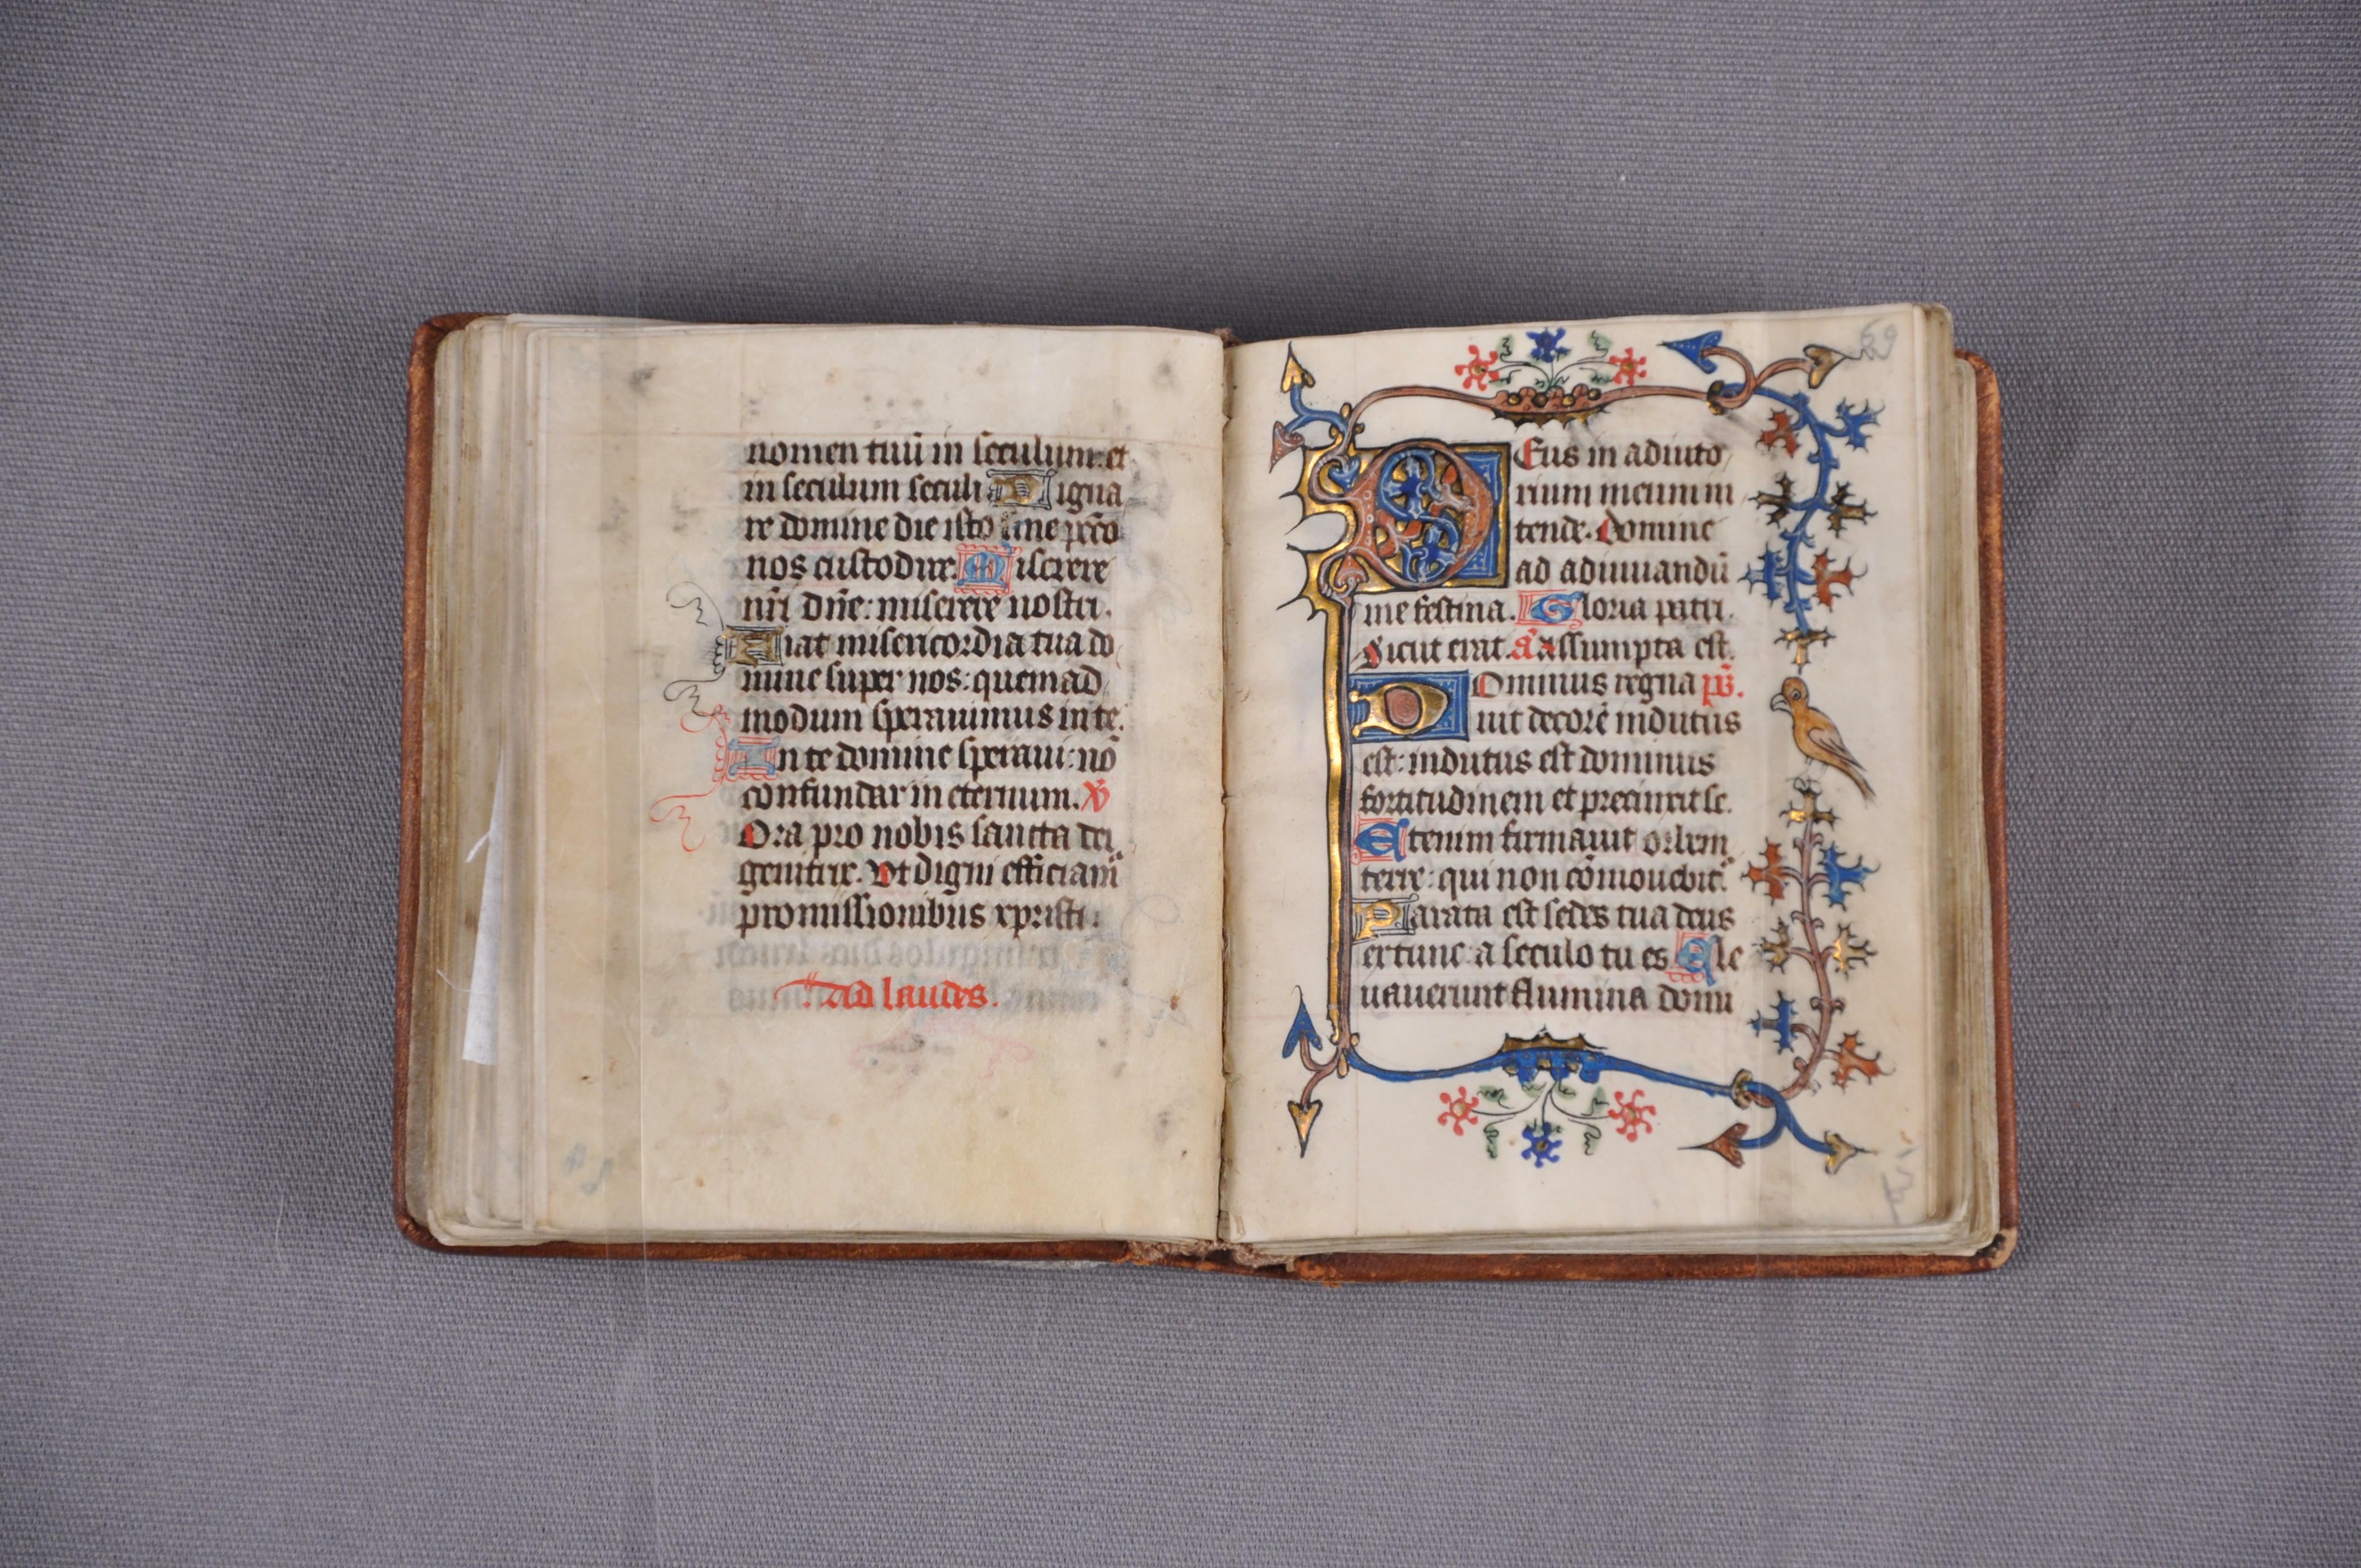 nomen tuū in seculum: et
in seculum seculi Digna
re domine die isto sine pctō
nos custodire. Miserere
nr̄i dn̄e: miserere nostri.
Fiat misericordia tua do
mine super nos: quemad
modum sperauimus in te.
In te domine speraui: nō
confundar in eternum. V̄
Ora pro nobis sancta dei
genitrix. Vt digni efficiam
promissionibus xpristi.
Ad laudes.
69
Deus in adiuto
rium meum in
tende. Domine
ad adiuuandū
me festina. Gloria patri.
Sicut erat. a͛ Assumpta est.
Dominus regna ps̄.
uit decorē indutus
est: indutus est dominus
fortitudinem et precinxit se.
Etenim firmauit orbem
terre: qui non cōmouebit᷑.
Parata est sedes tua deus
ex tunc: a seculo tu es Ele
uauerunt flumina domi